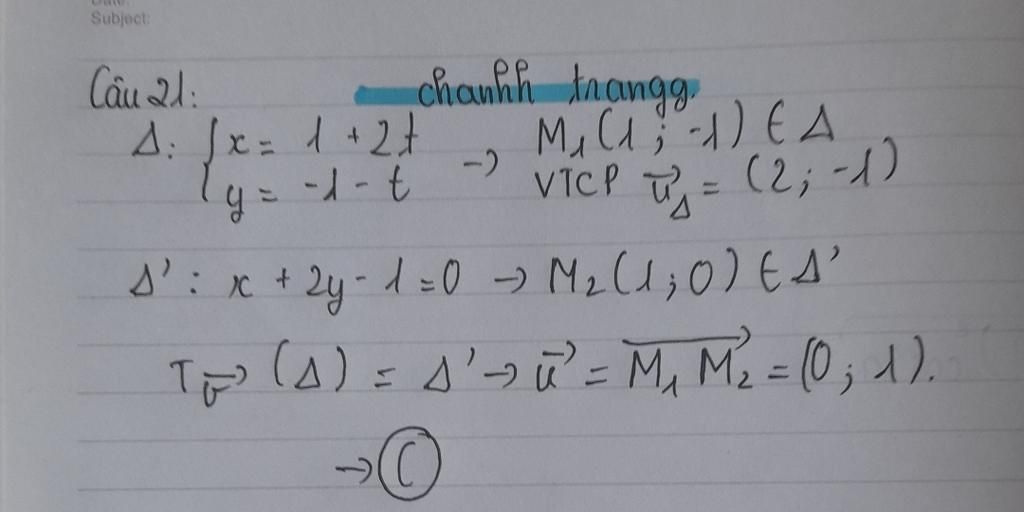 Subject:
Câu 21: chanhh trangg.
Δ: { x = 1 + 2t → M₁(1; -1) ∈ Δ
y = -1 - t VTCP u⃗_Δ = (2; -1)
Δ' : x + 2y - 1 = 0 → M₂(1; 0) ∈ Δ'
T_v⃗ (Δ) = Δ' → u⃗ = M₁M₂⃗ = (0; 1).
→ C